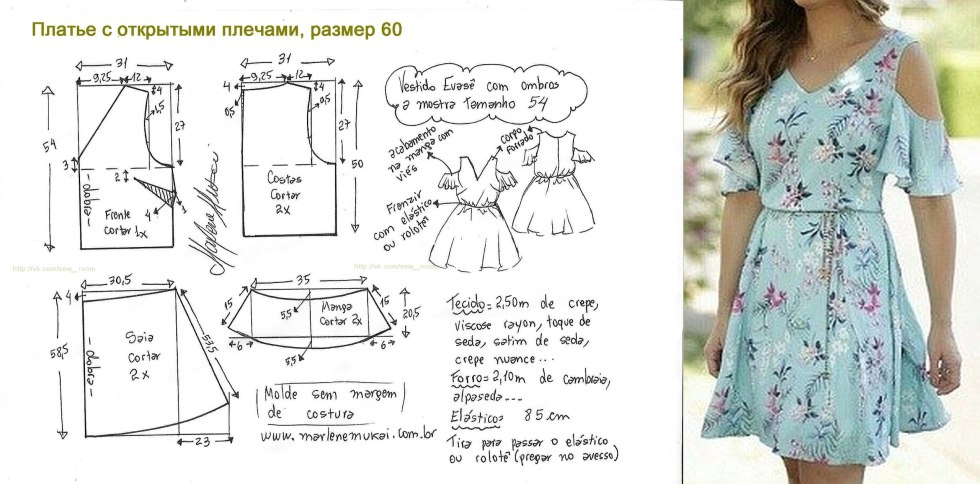 Платье с открытыми плечами, размер 60
31
9,25
12
4
1,5
54
27
3
2
4
- dobra -
Frente
cortar 1x
31
9,25
12
4
4
0,5
0,5
27
50
Costas
Cortar
2x
Marlene Mukai
Vestido Evasê com ombros
a mostra Tamanho 54
acabamento
na manga com
viés
corpo
forrado
Franzir
com elástico
ou rolotê
http://vk.com/sew_room
http://vk.com/sew_room
30,5
4
58,5
- dobra -
Saia
Cortar
2x
53,5
23
35
15
15
5,5
Manga
Cortar 2x
20,5
6
6
5,5
Molde sem margem
de costura
www.marlenemukai.com.br
Tecido= 2,50m de crepe,
viscose rayon, toque de
seda, satim de seda,
crepe nuance...
Forro= 2,10m de cambraia,
alpaseda...
Elástico= 85 cm
Tira para passar o elástico
ou rolotê (pregar no avesso)